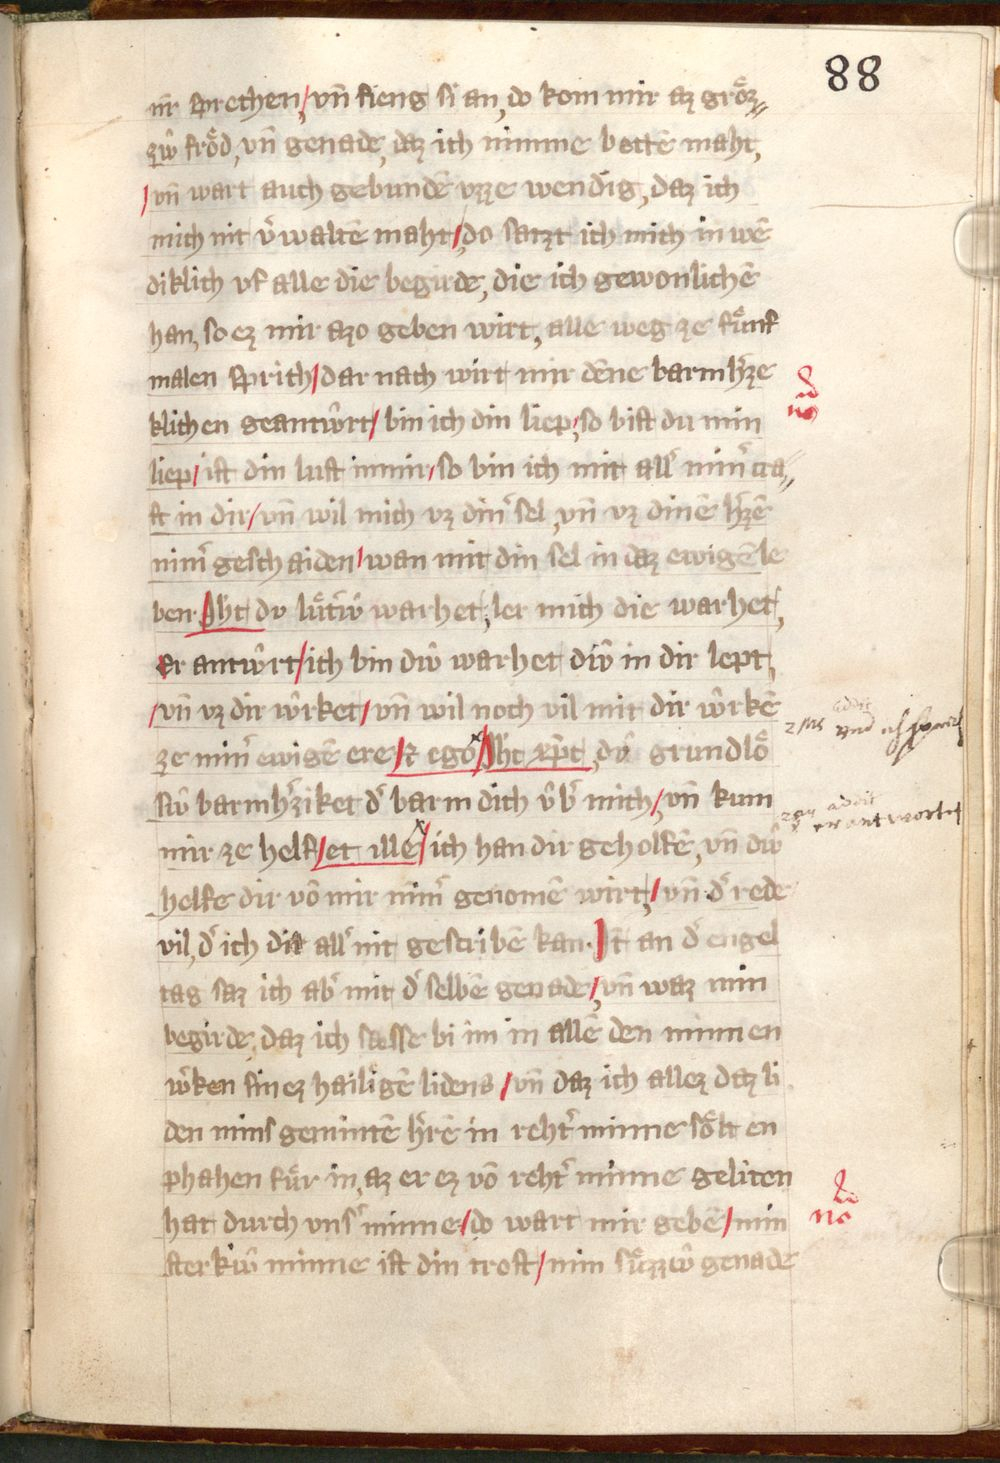 88
nr̄ sprechen / vn̄ fieng si an, do kom mir az grôz⸗
zŵ frôd, vn̄ genade, daz ich nimme bettē maht,
/ vn̄ wart auch gebundē vzze wendig, daz ich
mich nit v̓walтē maht / do satzt ich mich in wē
diklich vf alle die begirde, die ich gewonlichē
han, so ez mir azo geben wirt, alle weg ze fúnf
malen sprich / dar nach wirt mir dēne barmh̓ze
klichen geantẘrt / bin ich din liep, so bist du min
liep / ist din lust inmir / so bin ich mit all̓ min̓ cra⸗
ft in dir / vn̄ wil mich vz din̓ sel, vn̄ vz dinē h̓zē
nim̓ geschaiden / wan mit din sel in daz ewigē le
ben. Aht dv lút̓ŵ warhet, ler mich die warhet,
er antẘrt / ich bin dŵ warhet dŵ in dir lept,
/ vn̄ vz dir ẘrket / vn̄ wil noch vil mit dir ẘrkē
ze min̓ ewigē ere / Et ego Aht xp̄t, dv̂ grundlô
sŵ barmh̓ziket d̓ barm dich v̂b̓ mich, / vn̄ kum
mir ze helf / et ille / ich han dir geholfē, vn̄ dŵ
helfe dir vō mir nim̓ genomē wirt, / vn̄ d̓ rede
vil, d̓ ich dik all̓ nit gescribē kan. It̄ an d̓ engel
tag saz ich ab̓ mit d̓ selbē genade, / vn̄ waz min
begirde, daz ich sæsse bi im in allē den minnen
ẘken sinez hailigē lidens / vn̄ daz ich allez daz li
den mins geminтē h̓rē in reht̓ minne sôlt en
phahen fúr in, az er ez vō reht̓ minne geliten
hat durch vns̓ minne / do wart mir gebē / min
sterkŵ minne ist din trost / min súzzŵ genade
addit
2 Ms und ich sprach
addit
er antwortet